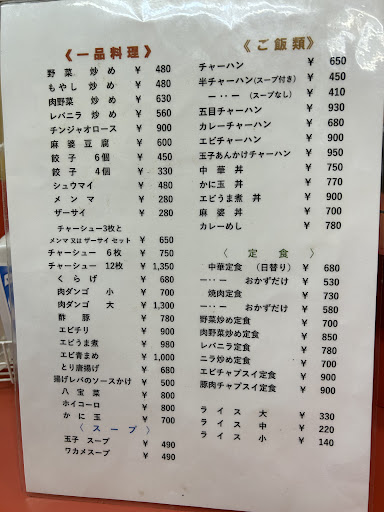 《一品料理》
野菜炒め ¥ 480
もやし炒め ¥ 480
肉野菜炒め ¥ 630
レバニラ炒め ¥ 560
チンジャオロース ¥ 900
麻婆豆腐 ¥ 600
餃子 6個 ¥ 450
餃子 4個 ¥ 330
シュウマイ ¥ 480
メンマ ¥ 280
ザーサイ ¥ 280
チャーシュー3枚と
メンマ又はザーサイセット ¥ 650
チャーシュー 6枚 ¥ 750
チャーシュー 12枚 ¥ 1,350
くらげ ¥ 680
肉ダンゴ 小 ¥ 700
肉ダンゴ 大 ¥ 1,300
酢豚 ¥ 780
エビチリ ¥ 900
エビうま煮 ¥ 980
エビ青まめ ¥ 1,000
とり唐揚げ ¥ 680
揚げレバのソースかけ ¥ 500
八宝菜 ¥ 800
ホイコーロ ¥ 800
かに玉 ¥ 700
〈スープ〉
玉子スープ ¥ 490
ワカメスープ ¥ 490
《ご飯類》
チャーハン ¥ 650
半チャーハン(スープ付き) ¥ 450
〃 (スープなし) ¥ 410
五目チャーハン ¥ 930
カレーチャーハン ¥ 680
エビチャーハン ¥ 900
玉子あんかけチャーハン ¥ 950
中華丼 ¥ 750
かに玉丼 ¥ 770
エビうま煮丼 ¥ 900
麻婆丼 ¥ 700
カレーめし ¥ 780
〈定食〉
中華定食 (日替り) ¥ 680
一・・一 おかずだけ ¥ 530
焼肉定食 ¥ 730
一・・一 おかずだけ ¥ 580
野菜炒め定食 ¥ 700
肉野菜炒め定食 ¥ 850
レバニラ定食 ¥ 780
ニラ炒め定食 ¥ 780
エビチャプスイ定食 ¥ 900
豚肉チャプスイ定食 ¥ 900
ライス 大 ¥ 330
ライス 中 ¥ 220
ライス 小 ¥ 140